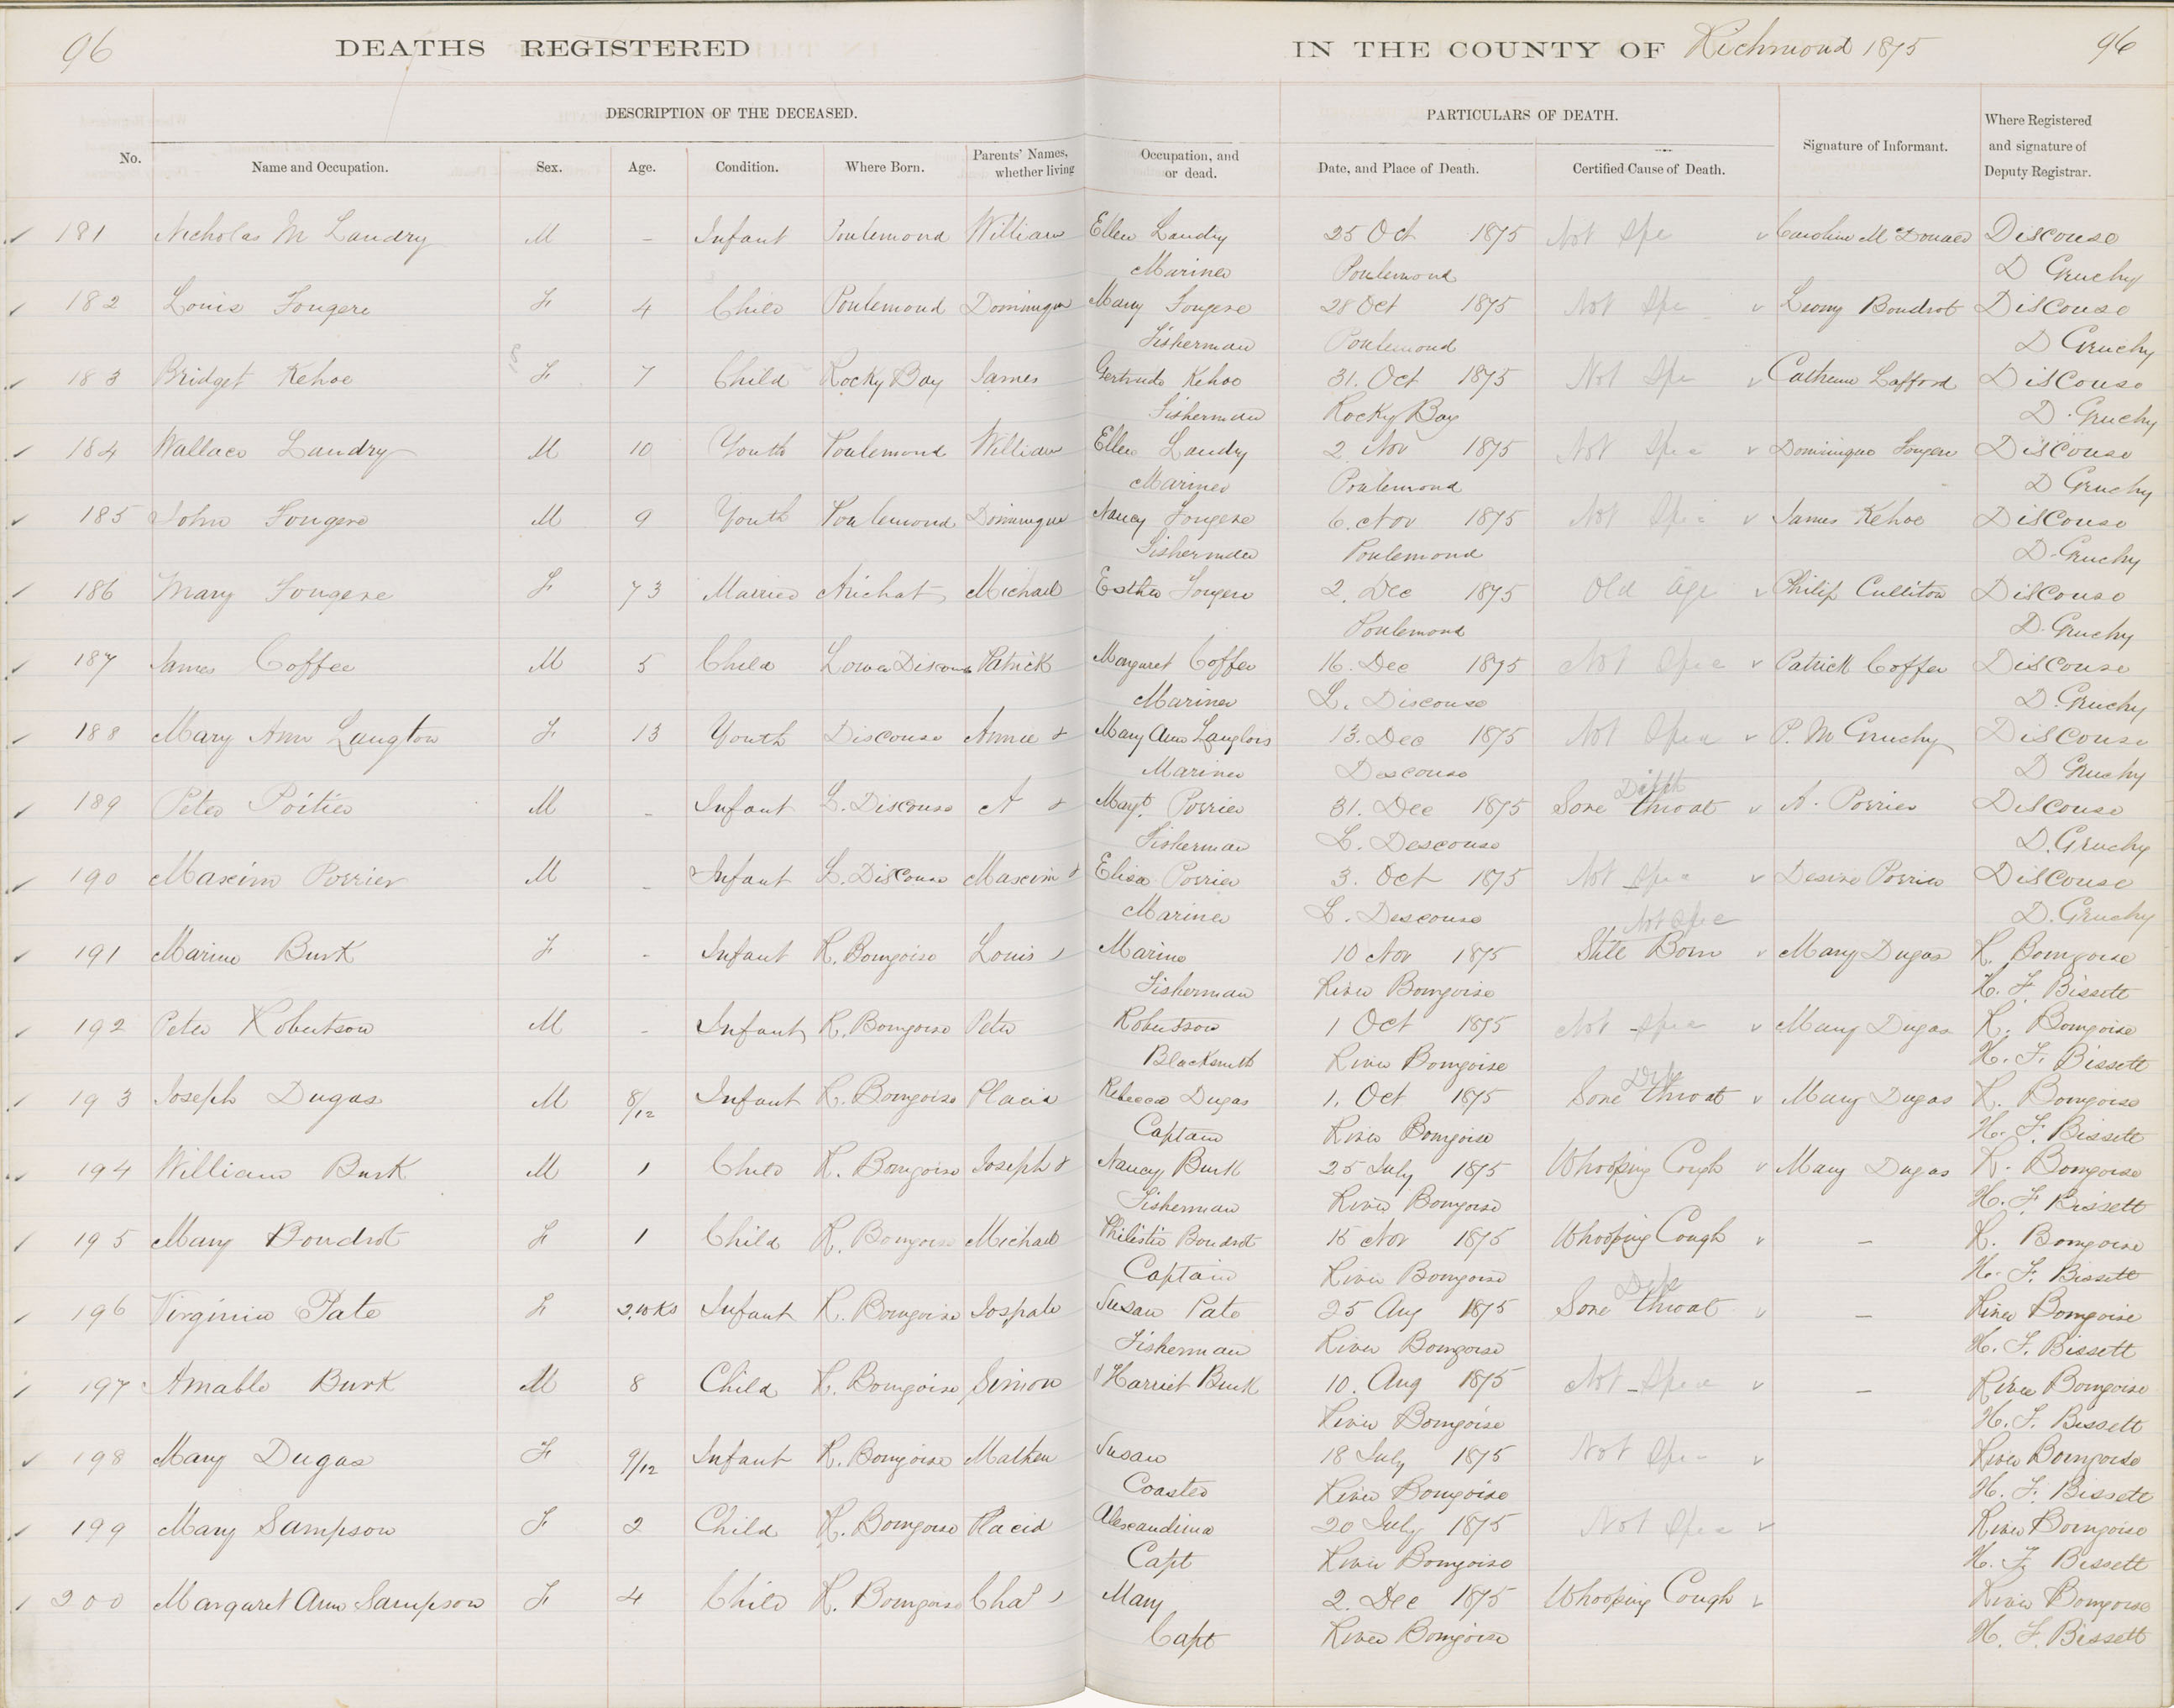 96 DEATHS REGISTERED IN THE COUNTY OF Richmond 1875 96
DESCRIPTION OF THE DECEASED. PARTICULARS OF DEATH.
No. Name and Occupation. Sex. Age. Condition. Where Born. Parents' Names, whether living Occupation, and or dead. Date, and Place of Death. Certified Cause of Death. Signature of Informant. Where Registered and signature of Deputy Registrar.
181 Nicholas M Landry M - Infant Poulemond William Ellen Landry 25 Oct 1875 Not Spe Caroline McDonald Discouse
Mariner Poulemond D Gruchy
182 Louis Fougere F 4 Child Poulemond Dominique Mary Fougere 28 Oct 1875 Not Spe Boudrot Discouse
Fisherman Poulemond D Gruchy
183 Bridget Kehoe F 7 Child Rocky Bay James Gertrude Kehoe 31. Oct 1875 Not Spe Lafford Discouse
Fisherman Rocky Bay D. Gruchy
184 Wallace Landry M 10 Youth Poulemond William Ellen Landry 2 Nov 1875 Not Spe Dominique Fougere Discouse
Mariner Poulemond D Gruchy
185 John Fougere M 9 Youth Poulemond Dominique Nancy Fougere 6. Nov 1875 Not Spe James Kehoe Discouse
Fisherman Poulemond D. Gruchy
186 Mary Fougere F 73 Married Arichat Michael Esther Fougere 2. Dec 1875 Old Age Philip Culliton Discouse
Poulemond D. Gruchy
187 James Coffee M 5 Child Lower Discouse Patrick Margaret Coffee 16. Dec 1875 Not Spec Patrick Coffee Discouse
Mariner L. Discouse D. Gruchy
188 Mary Ann Langton F 13 Youth Discouse Annie & Mary Ann Langlois 13. Dec 1875 Not Spec P. M Gruchy Discouse
Mariner Descouse D Gruchy
189 Peter Poitier M - Infant L. Discouse A & Mayt. Porrier 31. Dec 1875 Sore Diph throat A. Porrier Discouse
Fisherman L. Descouse D. Gruchy
190 Maxim Porrier M - Infant L. Discouse Maxim & Elisa Porrier 3. Oct 1875 Not Spe Desire Porrier Discouse
Mariner L. Descouse Not Spec D. Gruchy
191 Marine Burk F - Infant R. Bourgoise Louis & Marine 10 Nov 1875 Still Born Mary Dugas R. Bourgoise
Fisherman River Bourgoise H. F. Bissett
192 Peter Robertson M - Infant R. Bourgoise Peter Robertson 1 Oct 1875 Not Spec Mary Dugas R. Bourgoise
Blacksmith River Bourgoise H. F. Bissett
193 Joseph Dugas M 8/12 Infant R. Bourgoise Placid Rebecca Dugas 1. Oct 1875 Sore Dip throat Mary Dugas R. Bourgoise
Captain River Bourgoise H. F. Bissett
194 William Burk M 1 Child R. Bourgoise Joseph & Nancy Burk 25 July 1875 Whooping Cough Mary Dugas R. Bourgoise
Fisherman River Bourgoise H. F. Bissett
195 Mary Boudrot F 1 Child R. Bourgoise Michael Philistie Boudrot 15 Nov 1875 Whooping Cough - R. Bourgoise
Captain River Bourgoise H. F. Bissett
196 Virginia Pate F 2 wks Infant R. Bourgoise Susan Pate 25 Aug 1875 Sore Dip throat - River Bourgoise
Fisherman River Bourgoise H. F. Bissett
197 Amable Burk M 8 Child R. Bourgoise Simon & Harriet Burk 10. Aug 1875 Not Spec - River Bourgoise
River Bourgoise H. F. Bissett
198 Mary Dugas F 9/12 Infant R. Bourgoise Mathew Susan 18 July 1875 Not Spe River Bourgoise
Coaster River Bourgoise H. F. Bissett
199 Mary Sampson F 2 Child R. Bourgoise Placid Alexandrina 20 July 1875 Not Spec River Bourgoise
Capt River Bourgoise H. F. Bissett
200 Margaret Ann Sampson F 4 Child R. Bourgoise Chas & Mary 2. Dec 1875 Whooping Cough River Bourgoise
Capt River Bourgoise H. F. Bissett